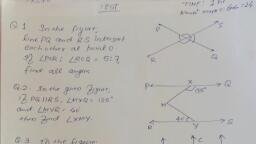 Test
Time: 1 hr
Q.1 In the figure,
line PQ and RS intersect
each other at point O
If ∠POR : ∠ROQ = 5:7
find all angles
P
S
R
Q
Q.2 In the given figure,
If PQ || RS, ∠MXQ = 135°
and ∠MYR = 40°
then find ∠XMY
P
X
Q
135°
M
40°
R
Y
S
Q.3 In the figure